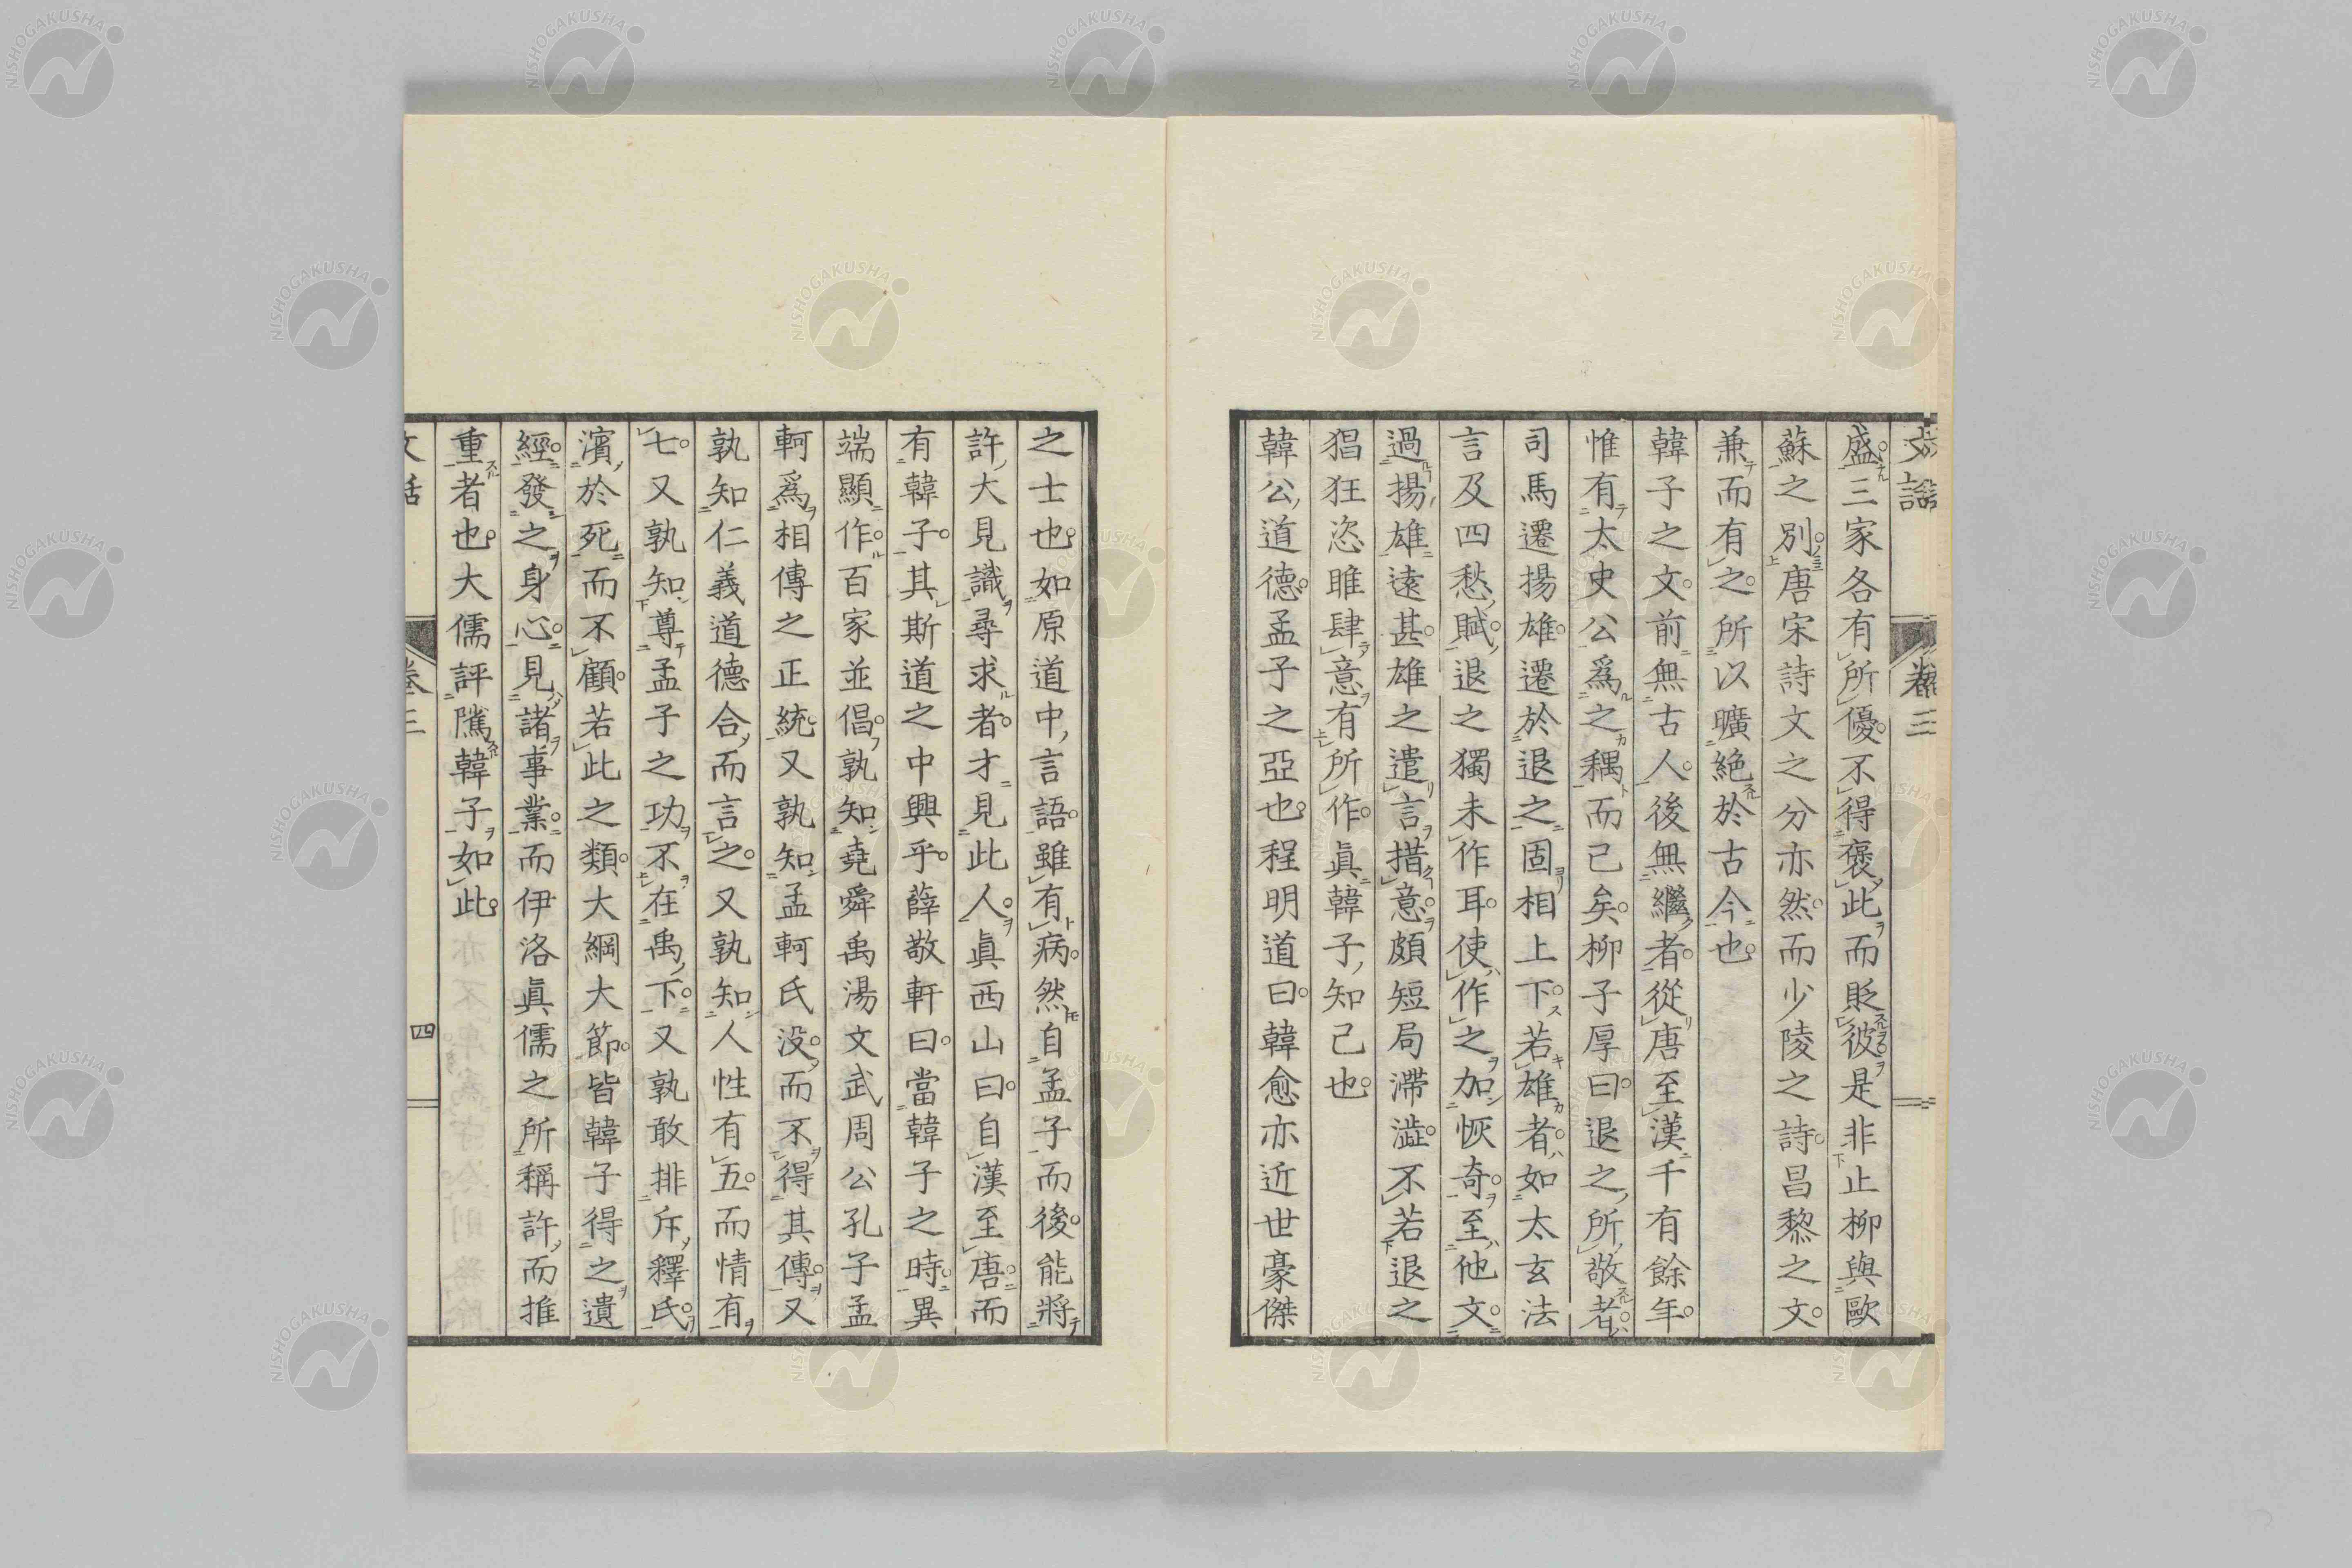 文話 卷三
盛三家各有所優不得褒此而貶彼是非止柳與歐
蘇之別唐宋詩文之分亦然而少陵之詩昌黎之文
兼而有之所以曠絕於古今也
韓子之文前無古人後無繼者從唐至漢千有餘年
惟有太史公爲之稱而已矣柳子厚曰退之所敬者
司馬遷揚雄遷於退之固相上下若雄者如太玄法
言及四愁賦退之獨未作耳使作之加恢奇至他文
過揚雄遠甚雄之遣言措意頗短局滯澁不若退之
猖狂恣睢肆意有所作眞韓子知己也
韓公道德孟子之亞也程明道曰韓愈亦近世豪傑
之士也如原道中言語雖有病然自孟子而後能將
許大見識尋求者才見此人眞西山曰自漢至唐而
有韓子其斯道之中興乎薛敬軒曰當韓子之時異
端顯作百家並倡孰知堯舜禹湯文武周公孔子孟
軻爲相傳之正統又孰知孟軻氏没而不得其傳又
孰知仁義道德合而言之又孰知人性有五而情有
七又孰知尊孟子之功不在禹下又孰敢排斥釋氏
濱於死而不顧若此之類大綱大節皆韓子得之遺
經發之身心見諸事業而伊洛眞儒之所稱許而推
重者也大儒評隲韓子如此
文話 卷三 四
NISHOGAKUSHA